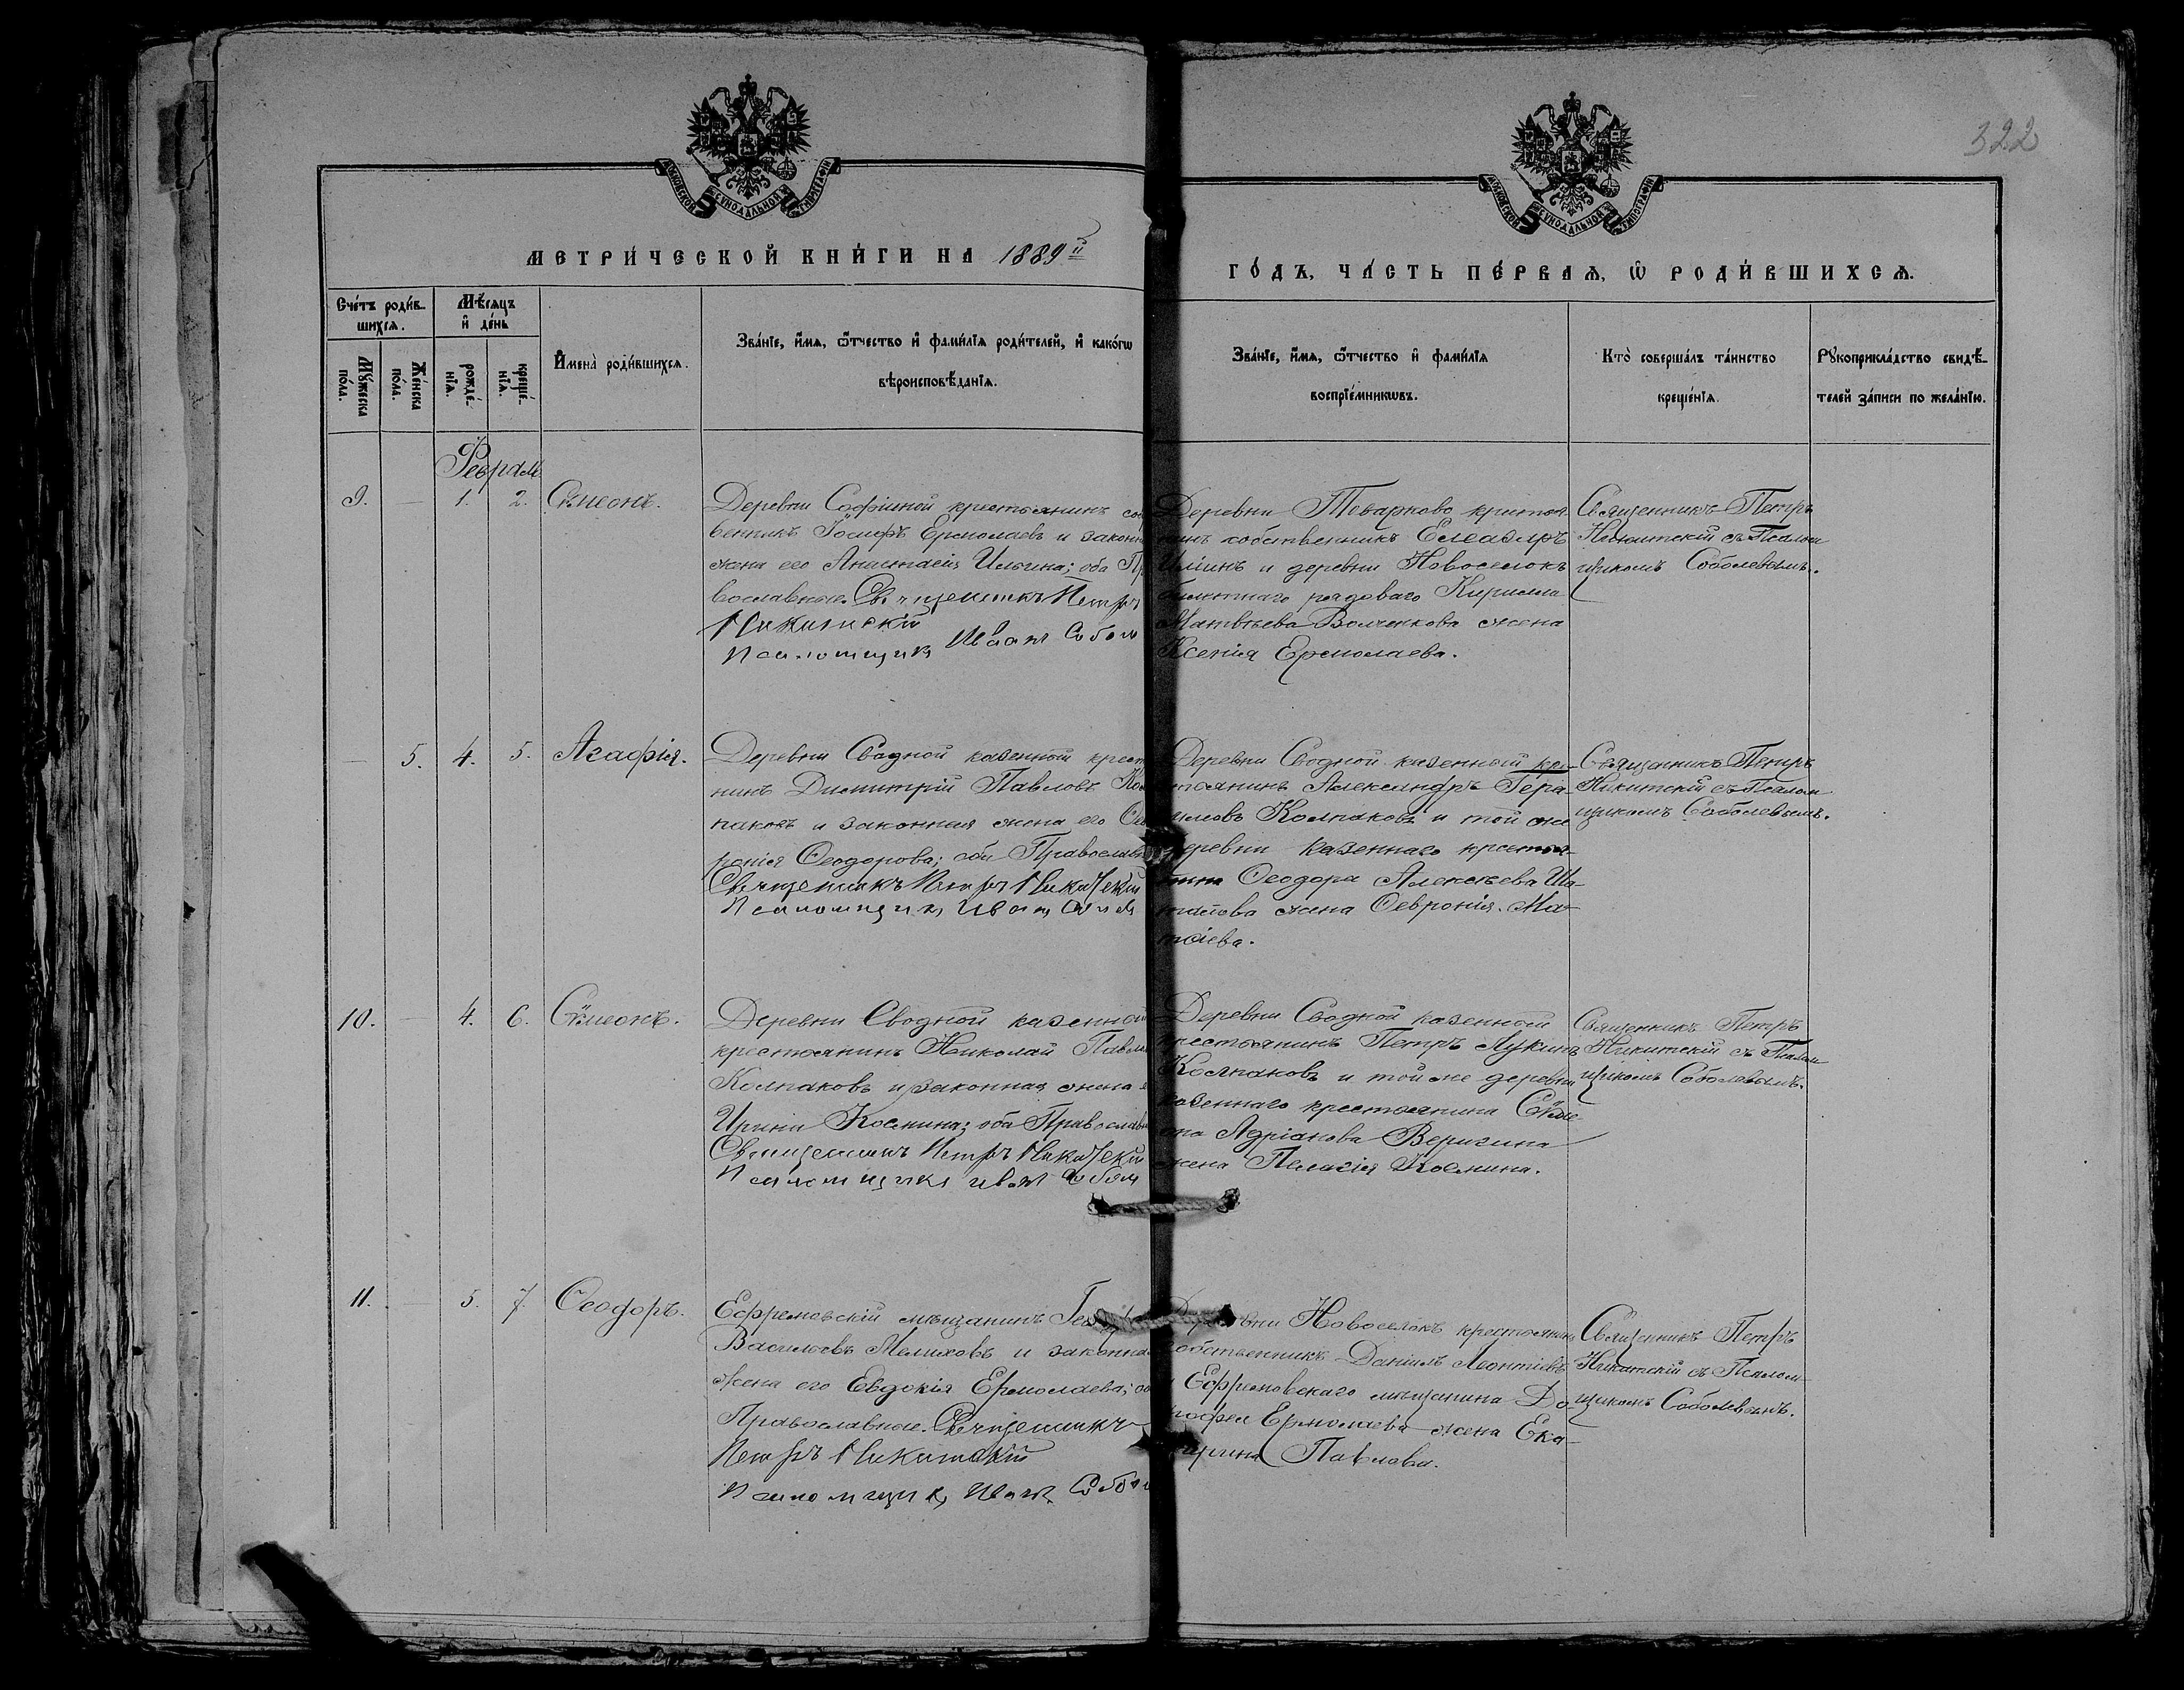 322
МОСКОВСКОЙ СѴНОДАЛЬНОЙ ТИПОГРАФІИ
МОСКОВСКОЙ СѴНОДАЛЬНОЙ ТИПОГРАФІИ
МЕТРИ́ЧЕСКОЙ КНИ́ГИ НА 1889й
ГО́ДЪ, ЧА́СТЬ ПЕ́РВАЯ, Ѽ РОДИ́ВШИХСЯ.
Сче́тъ роди́в-
шихся.
Мꙋ́жеска
по́ла.
Же́нска
по́ла.
Мѣ́сяцъ
и҆ де́нь
рожде́-
нїя.
креще́-
нїя.
И҆мена̀ роди́вшихся.
Зва́нїе, и҆́мя, ѻ҆́тчество и҆ фами́лїя роди́телей, и҆ како́гѡ
вѣроисповѣ́данїя.
Зва́нїе, и҆́мя, ѻ҆́тчество и҆ фами́лїя
воспрїе́мникѡвъ.
Кто̀ соверша́лъ та́инство
креще́нїя.
Рꙋкоприкла́дство свидѣ́-
телей за́писи по жела́нїю.
Феврал
9. — 1. 2. Сѵмеонъ.
Деревни Софіиной крестьянинъ соб
венникъ Іосифъ Ермолаевъ и законн
жена его Анастасія Ильина; оба Пр
вославные. Священникъ Петръ
Никитскій
Псаломщикъ Иванъ Собол
Деревни Товарково крестья
нинъ собственникъ Елеазаръ
Ильинъ и деревни Новоселокъ
билетнаго рядоваго Кирилла
Матвѣева Волченкова жена
Ксенія Ермолаева.
Священникъ Петръ
Никитскій съ Псалом
щикомъ Соболевымъ.
— 5. 4. 5. Агафія.
Деревни Сводной казенной крест
нинъ Димитрій Павловъ Кол
паковъ и законная жена его Ѳев
ронія Ѳеодорова; оба Православн
Священникъ Петръ Никитскій
Псаломщикъ Иванъ Собол
Деревни Сводной казенной кре-
стьянинъ Александръ Гера-
симовъ Колпаковъ и той же
деревни казеннаго крестья-
нина Ѳеодора Алексѣева Ша-
талова жена Ѳевронія Мат-
ѳіева.
Священникъ Петръ
Никитскій съ Псалом
щикомъ Соболевымъ.
10. — 4. 6. Сѵмеонъ.
Деревни Сводной казенной
крестьянинъ Николай Павло
Колпаковъ и законная жена е
Ирина Космина; оба Православн
Священникъ Петръ Никитскій
Псаломщикъ Иванъ Собол
Деревни Сводной казенной
крестьянинъ Петръ Лукинъ
Колпаковъ и той же деревни
казеннаго крестьянина Сѵме-
она Адріанова Веригина
жена Пелагія Космина.
Священникъ Петръ
Никитскій съ Псалом
щикомъ Соболевымъ.
11. — 5. 7. Ѳеодоръ.
Ефремовскій мѣщанинъ
Васильевъ Мелиховъ и законна
жена его Евдокія Ермолаева; об
Православные. Священникъ
Петръ Никитскій
Псаломщикъ Иванъ Собол
Деревни Новоселокъ крестьянинъ
собственникъ Даніилъ Леонтіевъ
и Ефремовскаго мѣщанина До-
рофея Ермолаева жена Ека-
терина Павлова.
Священникъ Петръ
Никитскій съ Псалом-
щикомъ Соболевымъ.